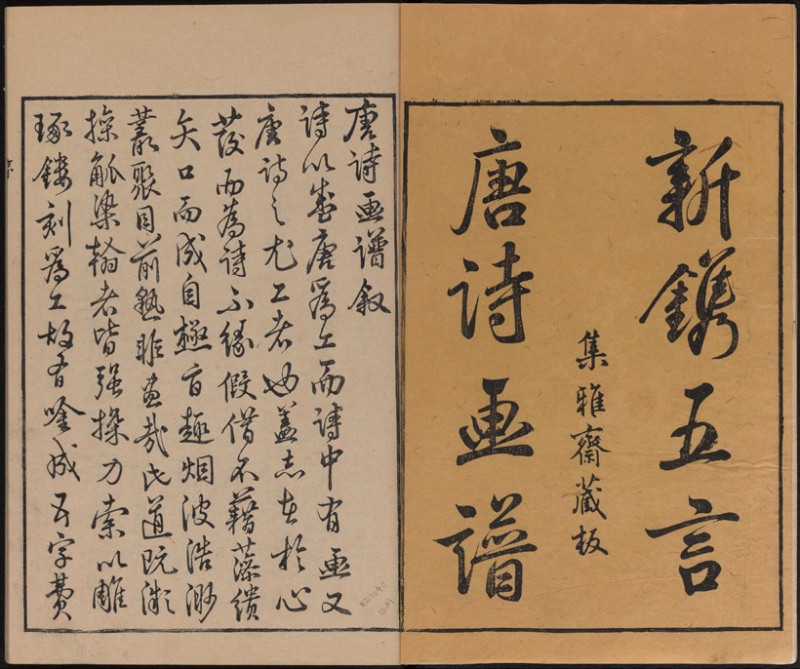 新鐫五言
集雅齋藏板
唐詩画譜
唐詩画譜叙
詩以盛唐爲工而詩中有画又
唐詩之尤工者也蓋志在於心
發而爲詩不緣假借不藉藻繢
矢口而成自極旨趣烟波浩渺
叢聚目前孰非畫哉世道既漓
操觚染翰者皆強操力索以雕
琢鏤刻爲工故有唫成五字費